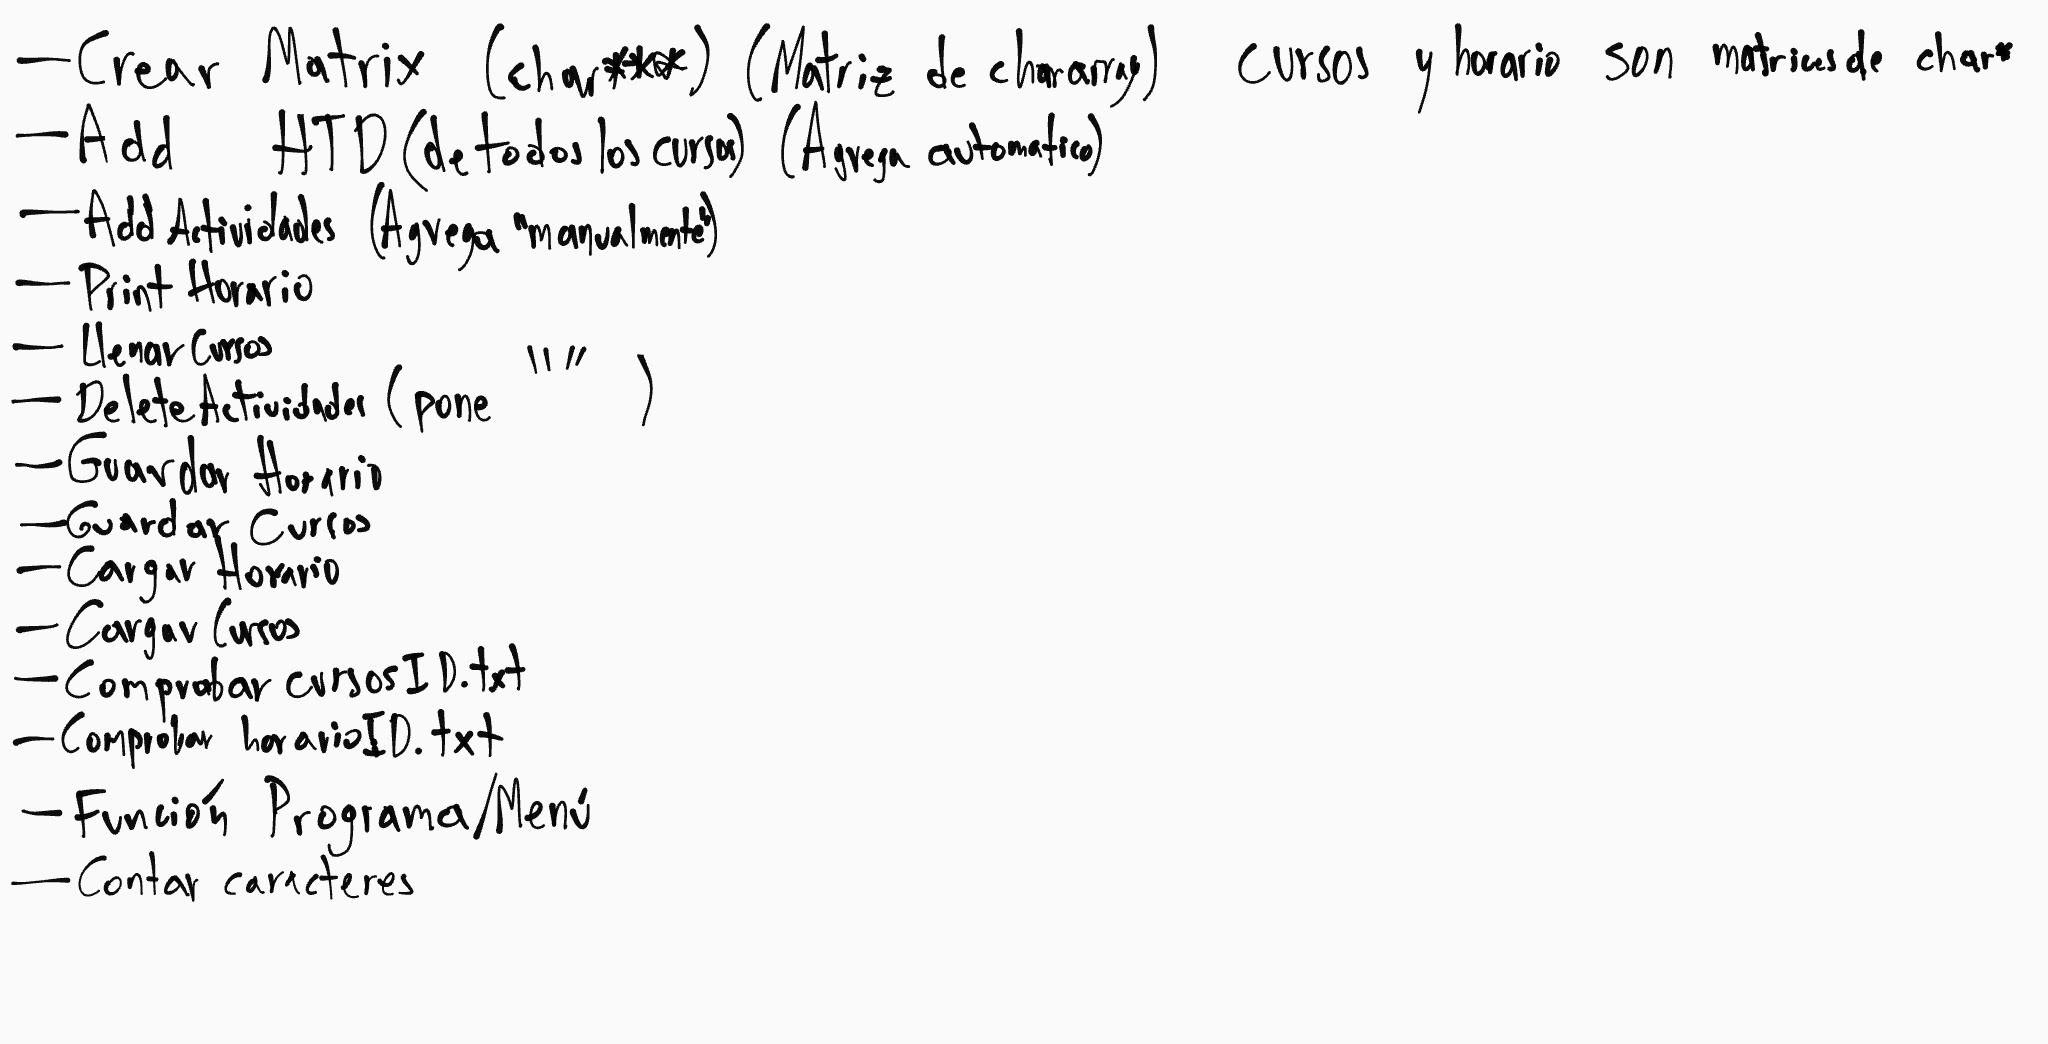 — Crear Matrix (char***) (Matriz de chararray) cursos y horario son matrices de char*
— Add HTD (de todos los cursos) (Agrega automatico)
— Add Actividades (Agrega "manualmente")
— Print Horario
— Llenar Cursos
— Delete Actividades (pone "" )
— Guardar Horario
— Guardar Cursos
— Cargar Horario
— Cargar Cursos
— Comprobar cursosID.txt
— Comprobar horarioID.txt
— Función Programa/Menú
— Contar caracteres